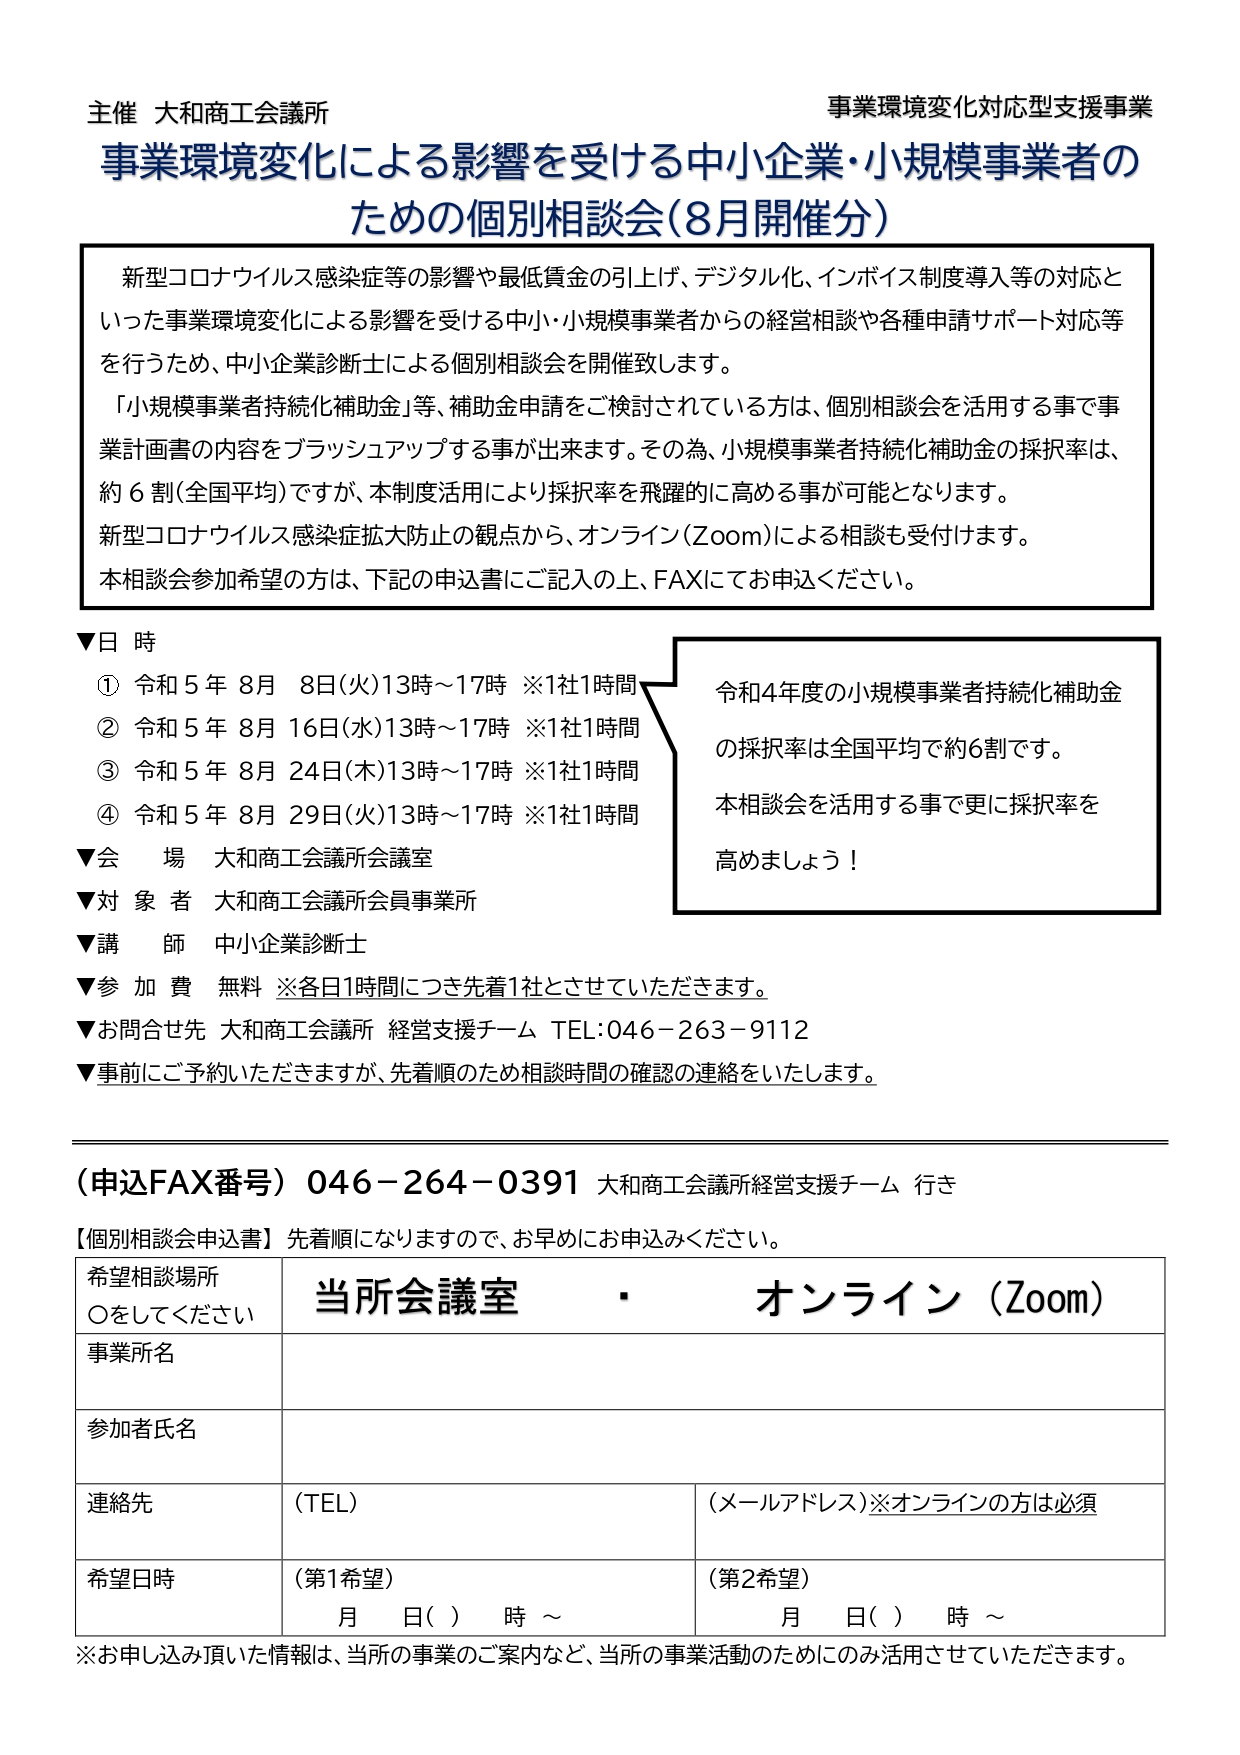 主催 大和商工会議所
事業環境変化対応型支援事業
事業環境変化による影響を受ける中小企業・小規模事業者の
ための個別相談会（8月開催分）
新型コロナウイルス感染症等の影響や最低賃金の引上げ、デジタル化、インボイス制度導入等の対応と
いった事業環境変化による影響を受ける中小・小規模事業者からの経営相談や各種申請サポート対応等
を行うため、中小企業診断士による個別相談会を開催致します。
「小規模事業者持続化補助金」等、補助金申請をご検討されている方は、個別相談会を活用する事で事
業計画書の内容をブラッシュアップする事が出来ます。その為、小規模事業者持続化補助金の採択率は、
約６割（全国平均）ですが、本制度活用により採択率を飛躍的に高める事が可能となります。
新型コロナウイルス感染症拡大防止の観点から、オンライン（Zoom）による相談も受付けます。
本相談会参加希望の方は、下記の申込書にご記入の上、FAXにてお申込ください。
▼日 時
① 令和５年 8月 8日（火）13時～17時 ※1社1時間
② 令和５年 8月 16日（水）13時～17時 ※1社1時間
③ 令和５年 8月 24日（木）13時～17時 ※1社1時間
④ 令和５年 8月 29日（火）13時～17時 ※1社1時間
令和4年度の小規模事業者持続化補助金
の採択率は全国平均で約6割です。
本相談会を活用する事で更に採択率を
高めましょう！
▼会 場 大和商工会議所会議室
▼対 象 者 大和商工会議所会員事業所
▼講 師 中小企業診断士
▼参 加 費 無料 ※各日1時間につき先着1社とさせていただきます。
▼お問合せ先 大和商工会議所 経営支援チーム TEL：046－263－9112
▼事前にご予約いただきますが、先着順のため相談時間の確認の連絡をいたします。
（申込FAX番号） 046－264－0391 大和商工会議所経営支援チーム 行き
【個別相談会申込書】 先着順になりますので、お早めにお申込みください。
希望相談場所
〇をしてください
当所会議室 ・ オンライン（Zoom）
事業所名
参加者氏名
連絡先 （TEL） （メールアドレス）※オンラインの方は必須
希望日時 （第1希望） （第2希望）
月 日（ ） 時 ～ 月 日（ ） 時 ～
※お申し込み頂いた情報は、当所の事業のご案内など、当所の事業活動のためにのみ活用させていただきます。